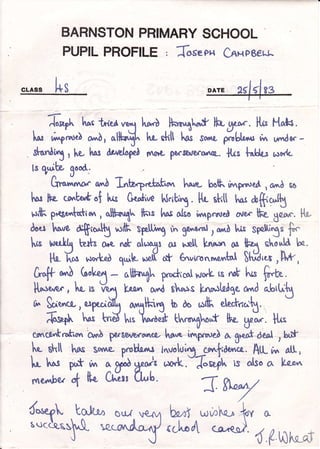 BARNSTON PRIMARY SCHOOL
PUPIL PROFILE : JOSEPH CAMPBELL
CLASS 4S DATE 25/5/83
Joseph has tried very hard throughout the year. His Maths.
has improved and, although he still has some problems in under-
standing, he has developed more perseverance. His tables work
is quite good.
Grammar and Interpretation have both improved, and so
has the content of his Creative Writing. He still has difficulty
with presentation, although this has also improved over the year. He
does have difficulty with spelling in general, and his spellings for
his weekly tests are not always as well known as they should be.
He has worked quite well at Environmental Studies, Art,
Craft and Cookery - although practical work is not his forte.
However, he is very keen and shows knowledge and ability
in Science, especially anything to do with electricity.
Joseph has tried his hardest throughout the year. His
concentration and perseverance have improved a great deal, but
he still has some problems involving confidence. All in all,
he has put in a good year's work. Joseph is also a keen
member of the Chess Club.
Joseph takes our very best wishes for a
successful secondary school career. J.R. Wheat